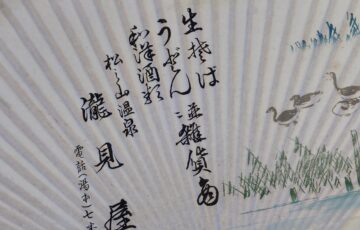 生そば
うどん 並雑貨商
和洋酒類
松之山温泉
瀧見屋
電話(湯本)七